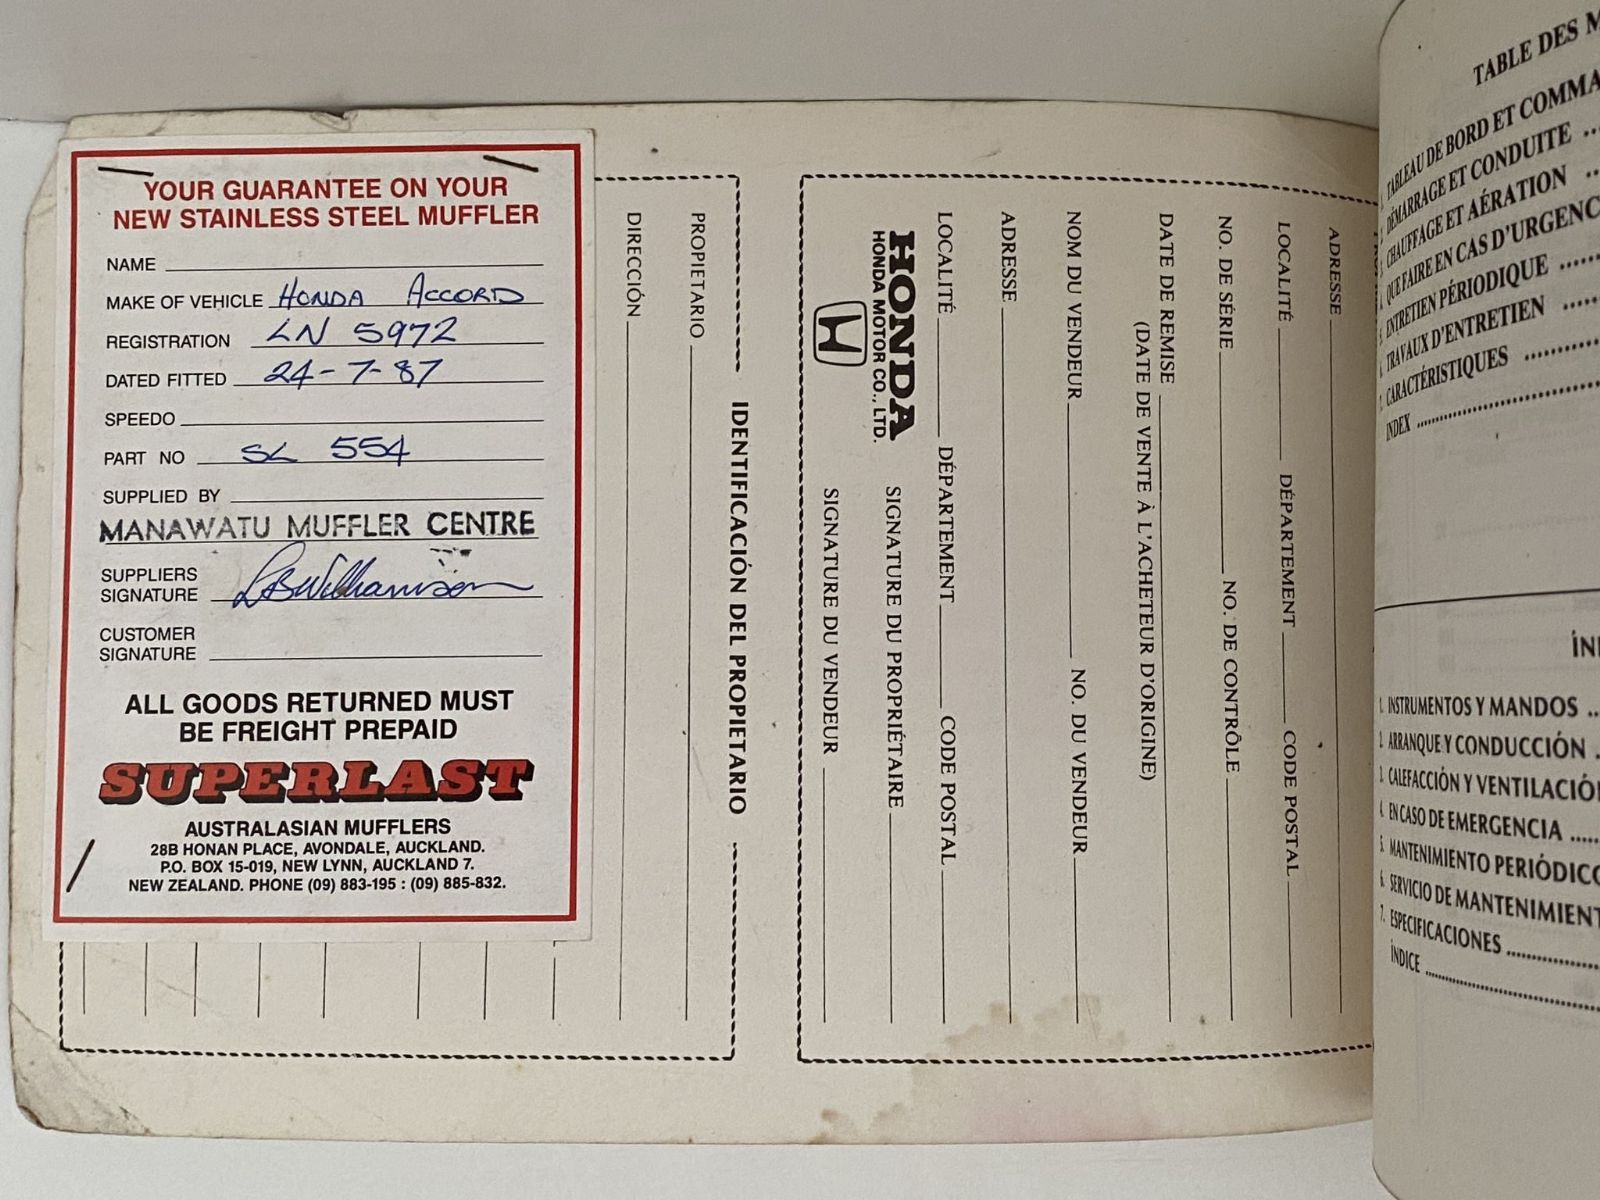 YOUR GUARANTEE ON YOUR
NEW STAINLESS STEEL MUFFLER
NAME
MAKE OF VEHICLE HONDA ACCORD
REGISTRATION LN 5972
DATED FITTED 24-7-87
SPEEDO
PART NO SL 554
SUPPLIED BY
MANAWATU MUFFLER CENTRE
SUPPLIERS
SIGNATURE LBWilliamson
CUSTOMER
SIGNATURE
ALL GOODS RETURNED MUST
BE FREIGHT PREPAID
SUPERLAST
AUSTRALASIAN MUFFLERS
28B HONAN PLACE, AVONDALE, AUCKLAND.
P.O. BOX 15-019, NEW LYNN, AUCKLAND 7.
NEW ZEALAND. PHONE (09) 883-195 : (09) 885-832.
IDENTIFICACIÓN DEL PROPIETARIO
PROPIETARIO
DIRECCIÓN
ADRESSE
LOCALITÉ DÉPARTEMENT CODE POSTAL
NO. DE SÉRIE NO. DE CONTRÔLE
DATE DE REMISE
(DATE DE VENTE À L'ACHETEUR D'ORIGINE)
NOM DU VENDEUR NO. DU VENDEUR
ADRESSE
LOCALITÉ DÉPARTEMENT CODE POSTAL
HONDA
HONDA MOTOR CO., LTD.
SIGNATURE DU PROPRIÉTAIRE
SIGNATURE DU VENDEUR
TABLE DES
1. TABLEAU DE BORD ET
2. DÉMARRAGE ET CONDUITE
3. CHAUFFAGE ET AÉRATION
4. QUE FAIRE EN CAS
5. ENTRETIEN PÉRIODIQUE
6. TRAVAUX D'ENTRETIEN
7. CARACTÉRISTIQUES
INDEX
1. INSTRUMENTOS Y MANDOS
2. ARRANQUE Y CONDUCCIÓN
3. CALEFACCIÓN Y
4. EN CASO DE EMERGENCIA
5. MANTENIMIENTO
6. SERVICIO DE
7. ESPECIFICACIONES
ÍNDICE